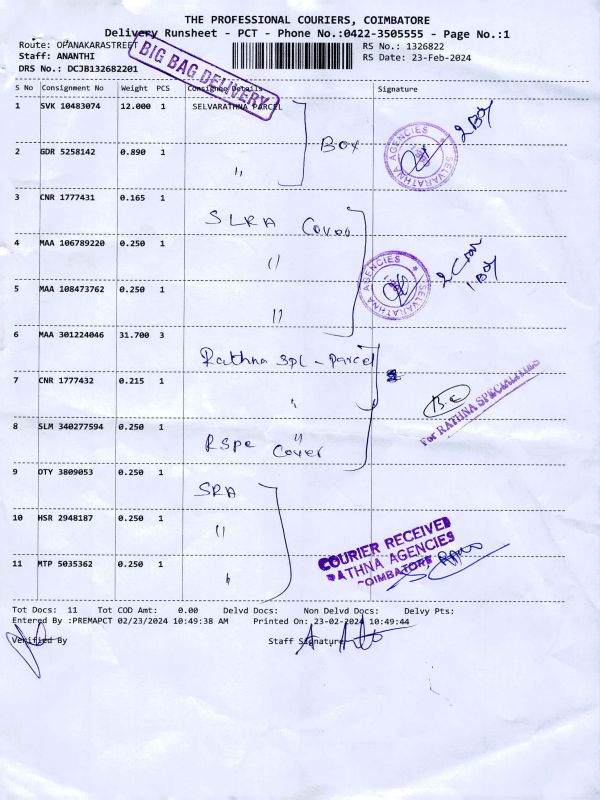 THE PROFESSIONAL COURIERS, COIMBATORE
Delivery Runsheet - PCT - Phone No.:0422-3505555 - Page No.:1
Route: OPANAKARASTREET
RS No.: 1326822
Staff: ANANTHI
RS Date: 23-Feb-2024
DRS No.: DCJB132682201
BIG BAG DELIVERY
S No Consignment No Weight PCS Consignee Details Signature
1 SVK 10483074 12.000 1 SELVARATHNA PARCEL
Box
2 Box
SELVARATHNA AGENCIES
2 GDR 5258142 0.890 1 "
3 CNR 1777431 0.165 1 SLRA Cover
4 MAA 106789220 0.250 1 "
SELVARATHNA AGENCIES
1 Box
5 MAA 108473762 0.250 1 "
6 MAA 301224046 31.700 3 Rathna Spl - Parcel
7 CNR 1777432 0.215 1 "
For RATHNA SPECIALITIES
8 SLM 340277594 0.250 1 "
Cover
9 OTY 3809053 0.250 1 SRA
10 HSR 2948187 0.250 1 "
COURIER RECEIVED
RATHNA AGENCIES
COIMBATORE
11 MTP 5035362 0.250 1 "
Tot Docs: 11 Tot COD Amt: 0.00 Delvd Docs: Non Delvd Docs: Delvy Pts:
Entered By :PREMAPCT 02/23/2024 10:49:38 AM Printed On: 23-02-2024 10:49:44
Verified By Staff Signature